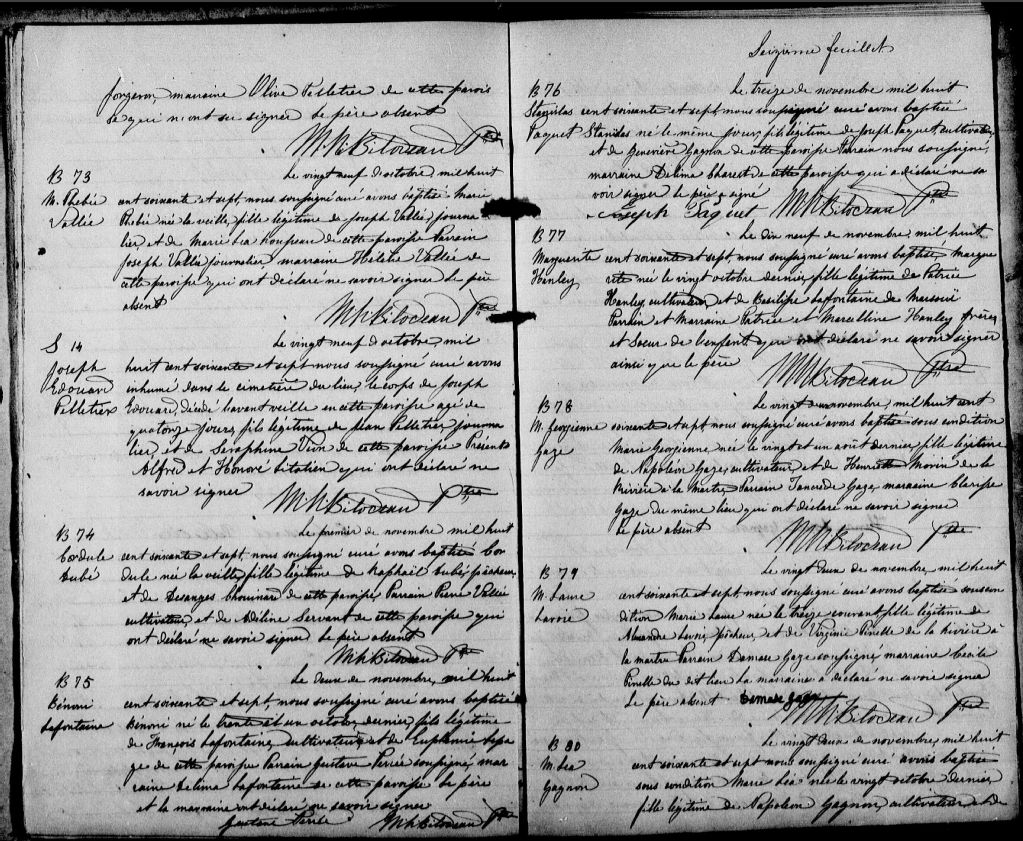 forgeron, marraine Olive Pelletier de cette parois
se qui n'ont su signer le père absent
M. N. Bilodeau Ptre
B 73
M. Phebée
Vallée
Le vingt neuf d'octobre, mil huit
cent soixante et sept, nous soussigné curé avons baptisé Marie
Phebée née la veille, fille légitime de Joseph Vallée, journa
lier, et de Marie Lea de cette paroisse Parrain
Joseph Vallée journalier, marraine Vallée de
cette paroisse qui ont déclaré ne savoir signer le père
absent
M. N. Bilodeau Ptre
S 14
Joseph
Edouard
Pelletier
Le vingt neuf d'octobre, mil
huit cent soixante et sept nous soussigné curé avons
inhumé dans le cimetière du lieu, le corps de Joseph
Edouard, décédé l'avant veille en cette paroisse agé de
quatorze jours, fils légitime de Jean Pelletier, journa
lier, et de Séraphine de cette paroisse Présents
Alfred et Honoré qui ont déclaré ne
savoir signer
M. N. Bilodeau Ptre
B 74
Cordule
Dubé
Le premier de novembre, mil huit
cent soixante et sept, nous soussigné curé avons baptisé Cor
dule née la veille, fille légitime de Raphaël Dubé, pêcheur,
et de Desanges Chouinard de cette paroisse, Parrain Pierre Vallée
cultivateur, et de Adeline Servant de cette paroisse qui
ont déclaré ne savoir signer le père absent
M. N. Bilodeau Ptre
B 75
Bénoni
Lafontaine
Le deux de novembre, mil huit
cent soixante et sept nous soussigné curé avons baptisé
Bénoni né le trente et un octobre, dernier, fils légitime
de François Lafontaine, cultivateur, et de Euphémie Lepa
ge de cette paroisse Parrain Gustave Perrée soussigné, mar
raine Délima Lafontaine de cette paroisse le père
et la marraine ont déclaré ne savoir signer
Gustave
M. N. Bilodeau Ptre
Seizième feuillet
B 76
Stanislas
Paquet
Le treize de novembre mil huit
cent soixante et sept, nous soussigné curé avons baptisé
Stanislas né le même jour, fils légitime de Joseph Paquet, cultivateur,
et de Geneviève Gagnon de cette paroisse Parrain nous soussigné,
marraine Delima Charest de cette paroisse qui a déclaré ne sa
voir signer le père a signé
Joseph Paquet M. N. Bilodeau Ptre
B 77
Marguerite
Hanley
Le dix neuf de novembre, mil huit
cent soixante et sept, nous soussigné curé avons baptisé Margue
rite née le vingt octobre dernier, fille légitime de Patrice
Hanley, cultivateur, et de Basilisse Lafontaine de Marsouï
Parrain et Marraine Patrice et Marcelline Hanley frères
et Soeur de l'enfant qui ont déclaré ne savoir signer
ainsi que le père
M. N. Bilodeau Ptre
B 78
M. Georgienne
Gaze
Le vingt deux novembre, mil huit cent
soixante et sept nous soussigné curé avons baptisé sous condition
Marie Georgienne, née le vingt et un août dernier, fille légitime
de Napoléon Gaze, cultivateur, et de Henriette Morin de la
Rivière à la Martre, Parrain Tancrede Gaze, marraine Clarisse
Gaze du même lieu, qui ont déclaré ne savoir signer
le père absent
M. N. Bilodeau Ptre
B 79
M. Laure
Lavoie
Le vingt deux de novembre, mil huit
cent soixante et sept nous soussigné curé avons baptisé sous con
dition Marie Laure née le treize courant, fille légitime de
Alexandre pêcheur, et de Virginie Pinelle de la rivière à
la martre Parrain Damase Gaze soussigné, marraine Cecile
Pinelle du dit lieu La marraine a déclaré ne savoir signer
Le père absent Demase gaze
M. N. Bilodeau Ptre
B 80
M. Lea
Gagnon
Le vingt deux de novembre, mil huit
cent soixante et sept nous soussigné curé avons baptisé
sous condition Marie Léa née le vingt octobre dernier
fille légitime de Napoléon Gagnon, cultivateur, et de